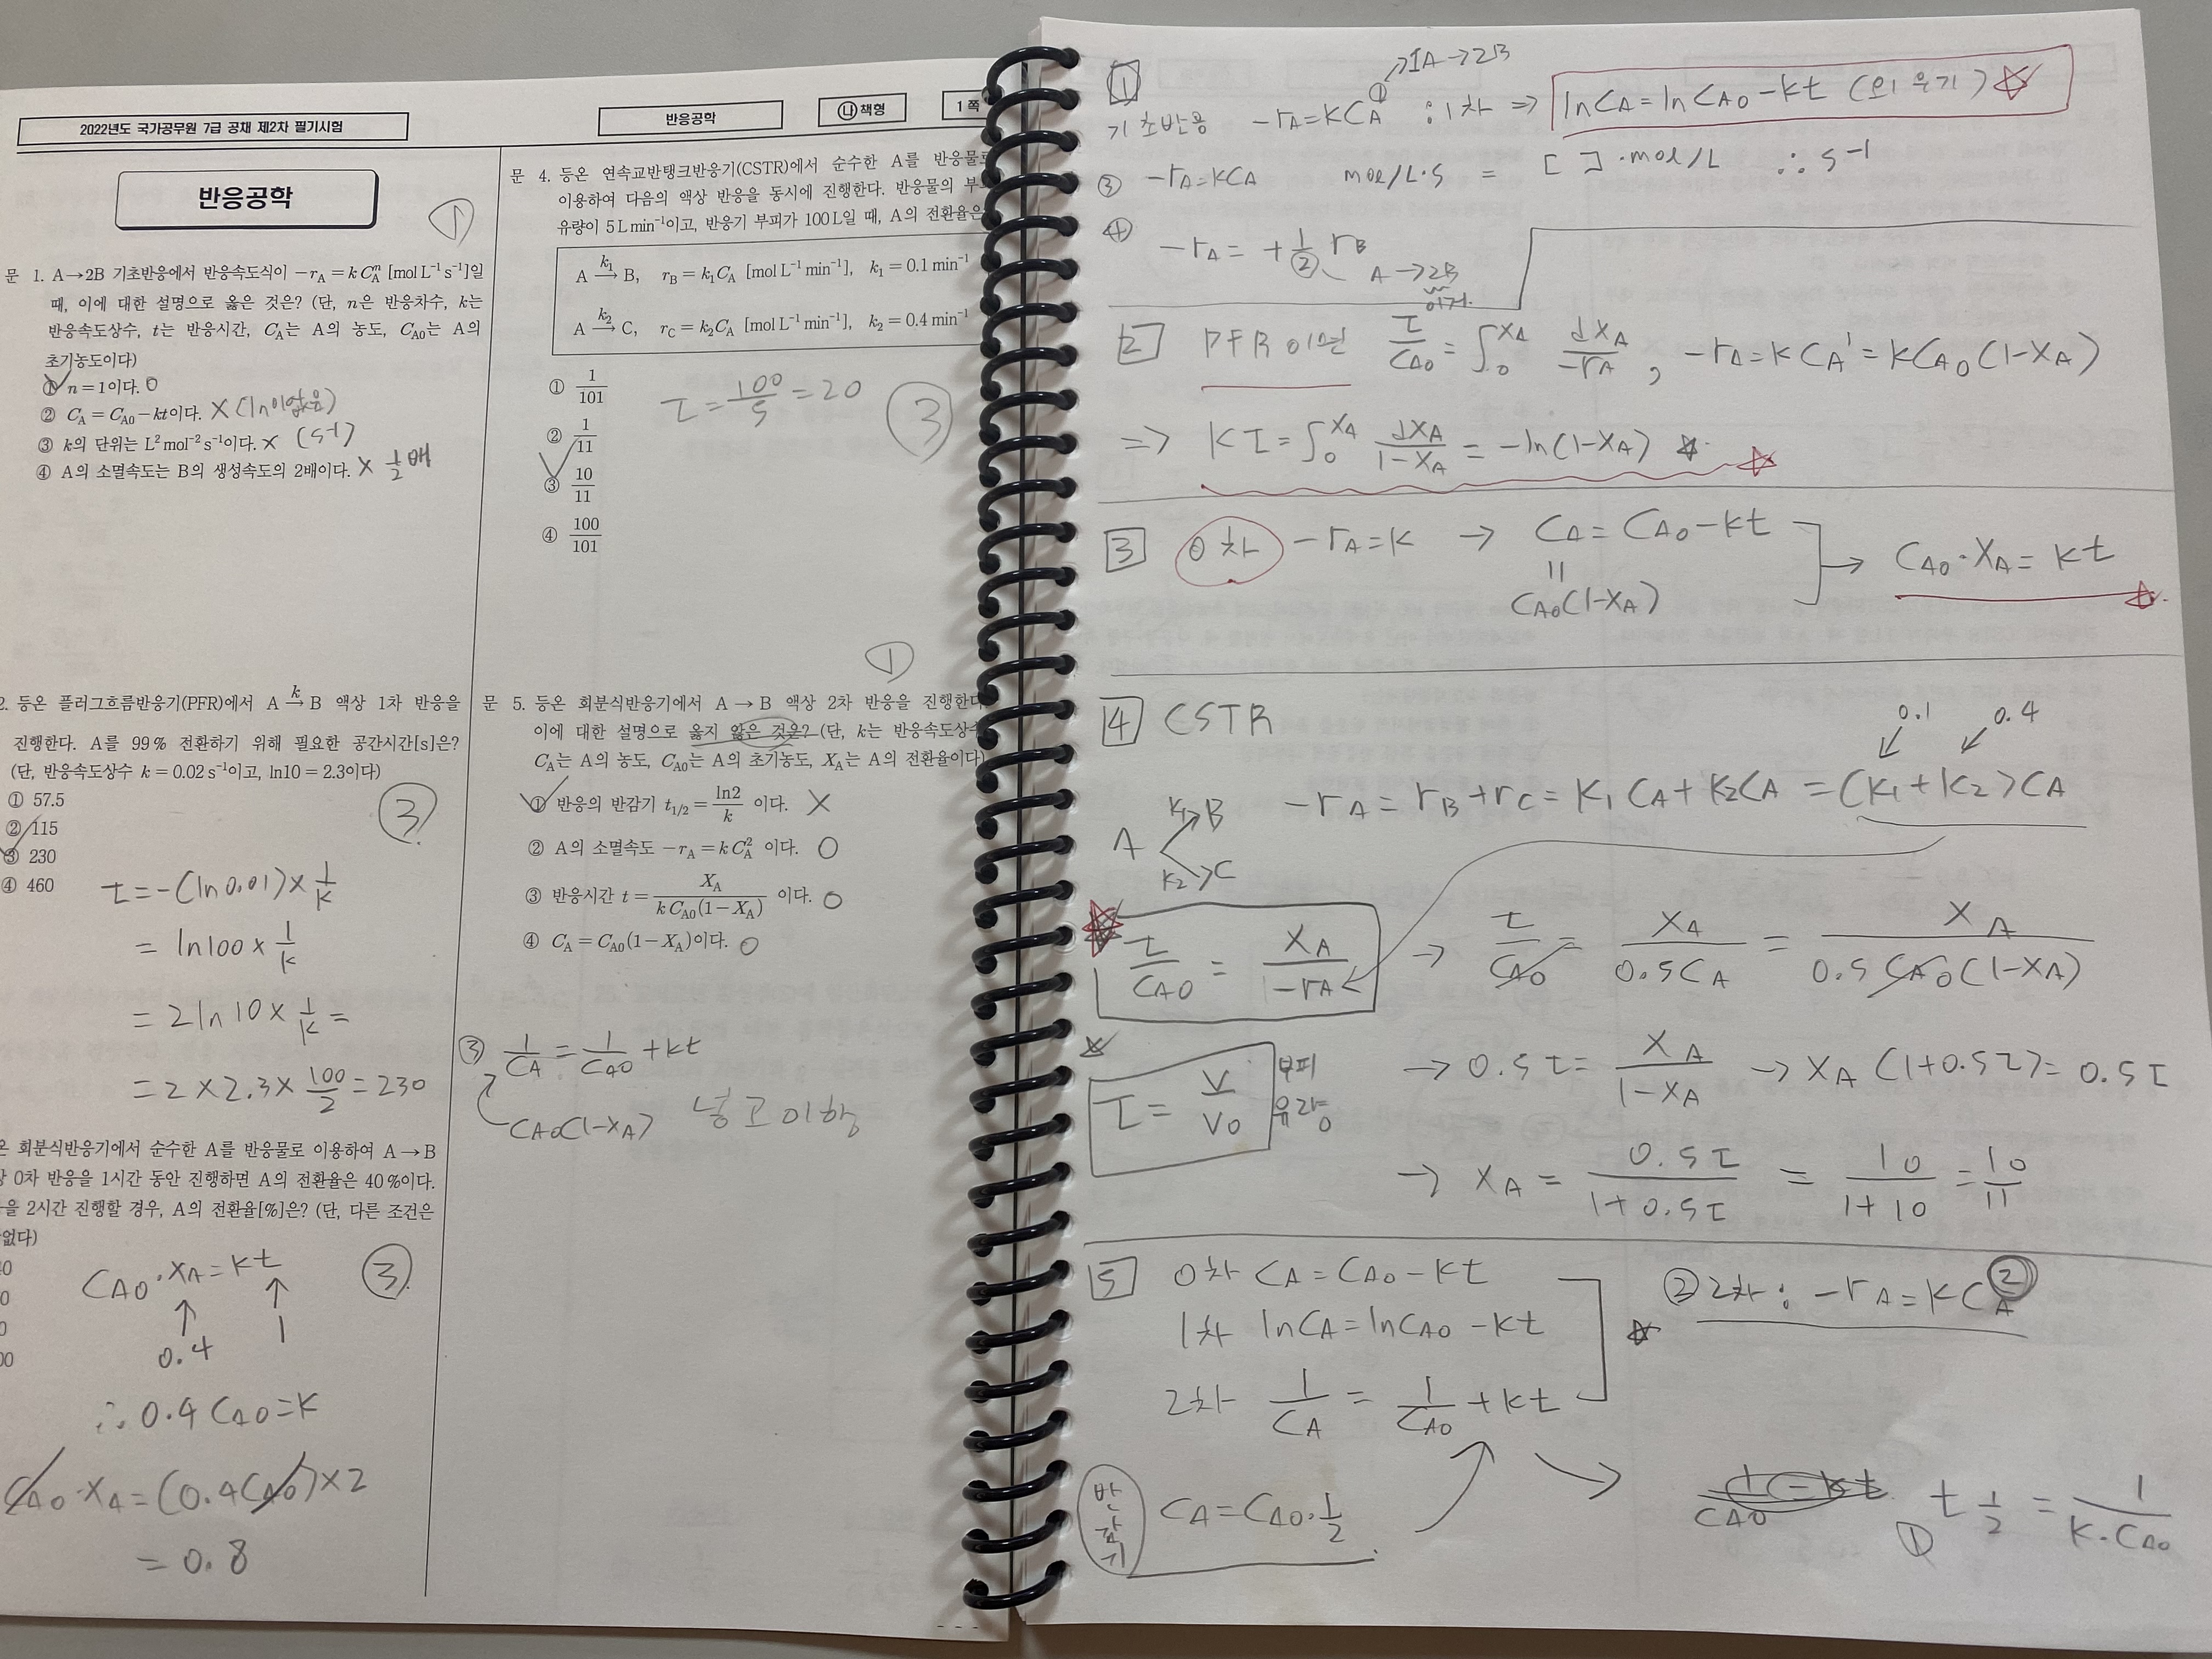 2022년도 국가공무원 7급 공채 제2차 필기시험
반응공학
나 책형
1 쪽
반응공학
①
문 1. A→2B 기초반응에서 반응속도식이 −r_A = k C_A^n [mol L⁻¹ s⁻¹]일
때, 이에 대한 설명으로 옳은 것은? (단, n은 반응차수, k는
반응속도상수, t는 반응시간, C_A는 A의 농도, C_A0는 A의
초기농도이다)
① n = 1이다. O
② C_A = C_A0 − kt이다. X (ln이 없음)
③ k의 단위는 L² mol⁻² s⁻¹이다. X (s⁻¹)
④ A의 소멸속도는 B의 생성속도의 2배이다. X 1/2 배
2. 등온 플러그흐름반응기(PFR)에서 A →(k) B 액상 1차 반응을
진행한다. A를 99 % 전환하기 위해 필요한 공간시간[s]은?
(단, 반응속도상수 k = 0.02 s⁻¹이고, ln10 = 2.3이다)
① 57.5
② 115
③ 230
④ 460
③
τ = −(ln 0.01) × 1/k
= ln100 × 1/k
= 2 ln 10 × 1/k =
= 2 × 2.3 × 100/2 = 230
회분식반응기에서 순수한 A를 반응물로 이용하여 A→B
0차 반응을 1시간 동안 진행하면 A의 전환율은 40 %이다.
을 2시간 진행할 경우, A의 전환율[%]은? (단, 다른 조건은
없다)
0
0
0
00
③
C_A0 · X_A = kt
↑ ↑
0.4 1
∴ 0.4 C_A0 = k
C_A0 · X_A = (0.4 C_A0) × 2
= 0.8
문 4. 등온 연속교반탱크반응기(CSTR)에서 순수한 A를 반응물로
이용하여 다음의 액상 반응을 동시에 진행한다. 반응물의 부
유량이 5 L min⁻¹이고, 반응기 부피가 100 L일 때, A의 전환율은
A →(k₁) B, r_B = k₁C_A [mol L⁻¹ min⁻¹], k₁ = 0.1 min⁻¹
A →(k₂) C, r_C = k₂C_A [mol L⁻¹ min⁻¹], k₂ = 0.4 min⁻¹
① 1/101
② 1/11
③ 10/11
④ 100/101
τ = 100/5 = 20
③
①
문 5. 등온 회분식반응기에서 A → B 액상 2차 반응을 진행한다
이에 대한 설명으로 옳지 않은 것은? (단, k는 반응속도상수
C_A는 A의 농도, C_A0는 A의 초기농도, X_A는 A의 전환율이다)
① 반응의 반감기 t_1/2 = ln2/k 이다. X
② A의 소멸속도 −r_A = k C_A² 이다. O
③ 반응시간 t = X_A/(k C_A0(1−X_A)) 이다. O
④ C_A = C_A0(1−X_A)이다. O
③ 1/C_A = 1/C_A0 + kt
C_A0(1−X_A) 넣고 이항
1
→ 1A→2B
기초반응 −r_A = kC_A^① : 1차 ⇒ lnC_A = lnC_A0 − kt (외우기) ☆
③ −r_A = kC_A mol/L·s = [ ]·mol/L ∴ s⁻¹
④ −r_A = + 1/2 r_B
A → 2B
이거.
2 PFR이면 τ/C_A0 = ∫₀^X_A dX_A/−r_A , −r_A = kC_A¹ = kC_A0(1−X_A)
⇒ kτ = ∫₀^X_A dX_A/(1−X_A) = −ln(1−X_A) ☆ ☆
3 0차 −r_A = k → C_A = C_A0 − kt → C_A0·X_A = kt ☆
=
C_A0(1−X_A)
4 CSTR
0.1 0.4
−r_A = r_B + r_C = k₁C_A + k₂C_A = (k₁+k₂)C_A
A k₁→B
k₂→C
☆ τ/C_A0 = X_A/−r_A → τ/C_A0 = X_A/0.5C_A = X_A/0.5C_A0(1−X_A)
☆ τ = V/v₀ 부피 유량
→ 0.5τ = X_A/(1−X_A) → X_A(1+0.5τ) = 0.5τ
→ X_A = 0.5τ/(1+0.5τ) = 10/(1+10) = 10/11
5 0차 C_A = C_A0 − kt
1차 lnC_A = lnC_A0 − kt
2차 1/C_A = 1/C_A0 + kt
☆
② 2차 : −r_A = kC_A²
반감기 C_A = C_A0 · 1/2
① t_1/2 = 1/(k·C_A0)